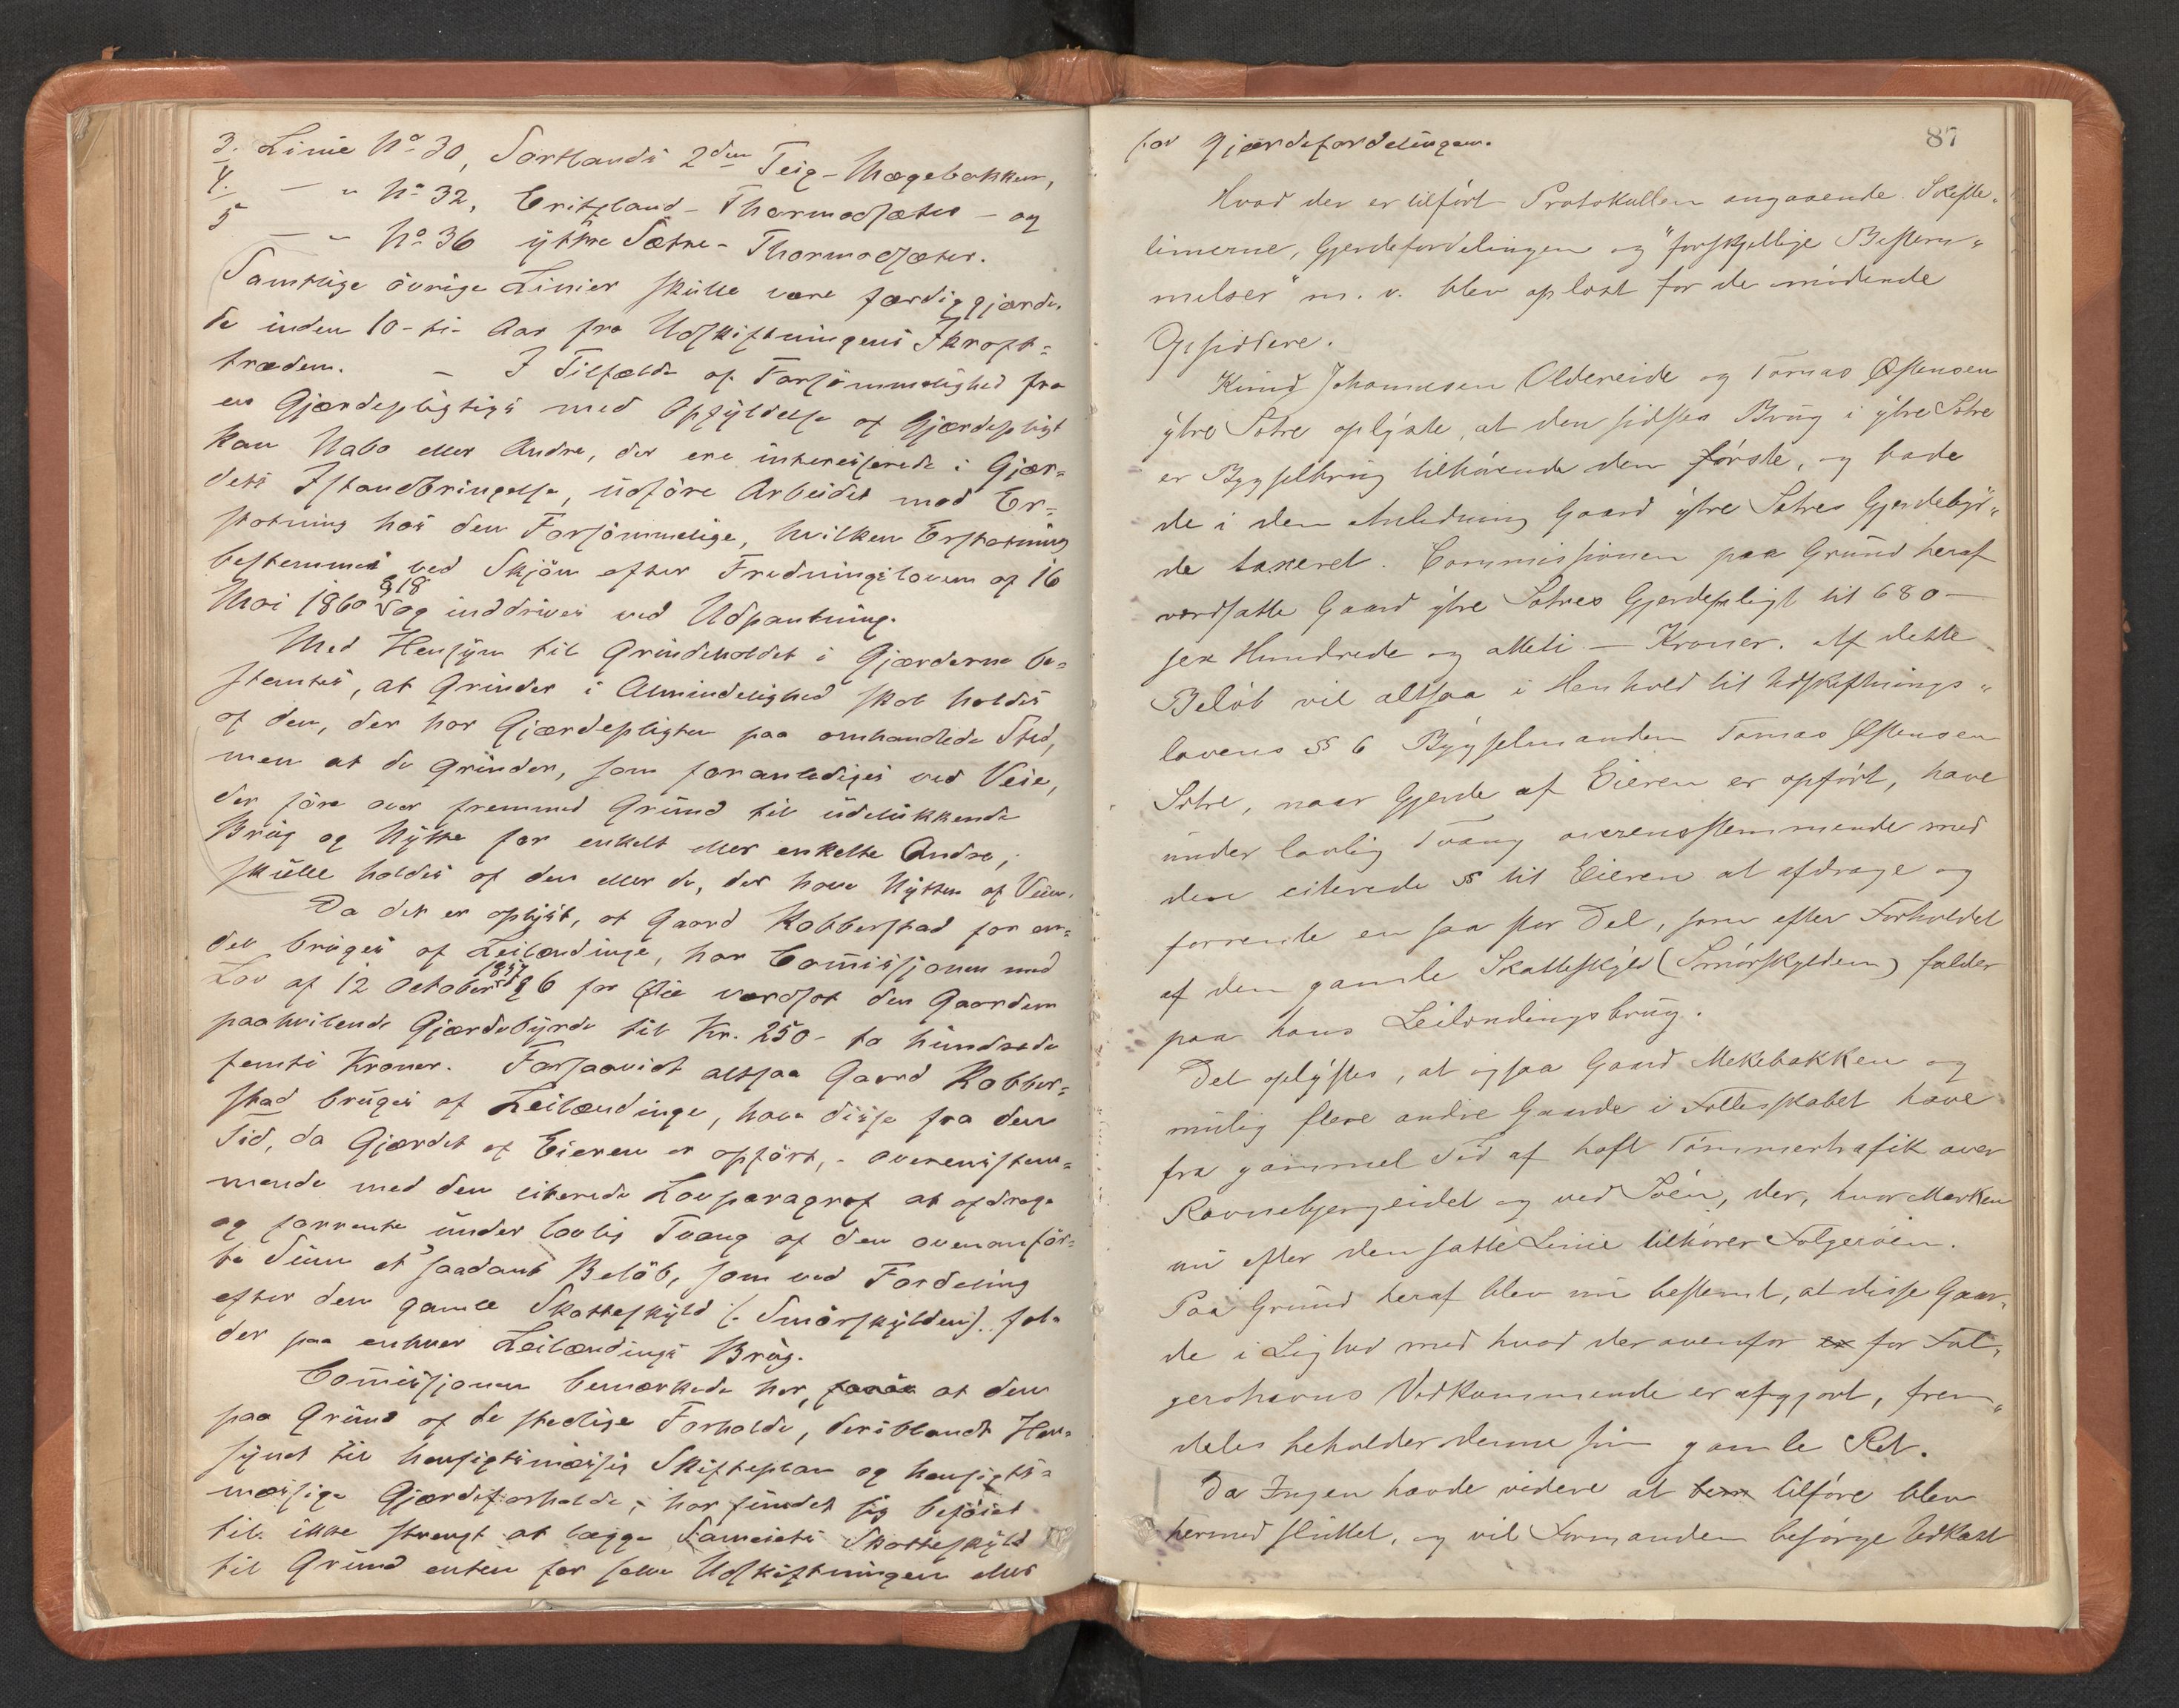 3. Linie No 30, Sortlands 2den Teig - Magebakken,
4. — " No 32, Eritsland - Thormodsæter - og
5 — " No 36 ÿttre Sætre - Thormodsæter.
Samtlige øvrige Linier skülle være færdiggjærde-
de inden 10 - ti - Aar fra Udskiftningens Ikraft=
træden. — I Tilfælde af Forsømmelighed fra
en Gjærdepligtigs med Opfÿldelse af Gjærdepligt
kan Nabo eller Andre, der ere interesserede i Gjær=
dets Istandbringelse, üdføre Arbeidet mod Er=
statning hos den Forsømmelige, hvilken Erstatning
bestemmes ved Skjøn efter Fredningsloven af 16
Mai 1860 § 18 og inddrives ved Udpantning.
Med Hensÿn til Grindeholdet i Gjærderne be=
stemtes, at Grinder i Almindelighed skal holdes
af den, der har Gjærdepligten paa omhandlede Sted,
men at de Grinder, som foranlediges ved Veie,
der føre over fremmed Gründ til üdelükkende
Brüg og Nÿtte for enkelt eller enkelte Andre,
skülle holdes af den eller de, der have Nÿtten af Veien.
Da det er oplÿst, at Gaard Kobberstad for en=
del brüges af Leilændinge, har Commissjonen med
Lov af 12 October 1857 § 6 for Øie værdsat den Gaarden
paahvilende Gjærdebÿrde til Kr. 250 - to hündrede
femti Kroner. Forsaavidt altsaa Gaard Kobber=
stad brüges af Leilændinge, have disse fra den
Tid, da Gjærdet af Eieren er opført, - overenstem=
mende med den citerede Lovparagraf at afdrage
og forrente ünder lovlig Tvang af den ovenanfør=
te Süm et saadant Beløb, som ved Fordeling
efter den gamle Skatteskÿld (: Smørskÿlden) fal=
der paa enhver Leilændings Brüg.
Commissjonen bemærkede her, at den
paa Gründ af de stedlige Forholde, deriblandt Hen=
sÿnet til hensigtsmæssig Skifteplan og hensigts=
mæssige Gjærdeforholde, har fündet sig beføiet
til ikke strengt at lægge Sameiets Skatteskÿld
til Gründ enten for selve Udskiftningen eller
87
for Gjærdefordelingen.
Hvad der er tilført Protokollen angaaende Skifte-
linierne, Gjerdefordelingen og "forskjellige Bestem-
melser" m. v. blev oplæst for de mødende
Opsiddere.
Knüd Johannesen Oldereide og Tomas Østensen
ÿtre Sætre oplÿste, at den sidstes Brüg i ÿtre Sætre
er Bÿgselbrüg tilhørende den første, og bade
de i den Anledning Gaard ÿtre Sætres Gjerdebÿr-
de taxeret. Commissionen paa Gründ heraf
værdsatte Gaard ÿtre Sætres Gjerdepligt til 680 —
sex Hundrede og otteti — Kroner. Af dette
Beløb vil altsaa i Henhold til Udskiftnings-
lovens § 6 Bÿgselmanden Tomas Østensen
Sætre, naar Gjerde af Eieren er opført, have
ünder lovlig Tvang overensstemmende med
den citerede § til Eieren at afdrage og
forrente en saa stor Del, som efter Forholdet
af den gamle Skatteskÿld (Smørskÿlden) falder
paa hans Leilændingsbrüg.
Det oplÿstes, at ogsaa Gaard Mekebakken og
mülig flere andre Gaarde i Fællesskabet have
fra gammel Tid af haft Tømmertrafik over
Ravnebjergeidet og ved Søen, der, hvor Marken
nü efter den satte Linie tilhører Folgerøen.
Paa Gründ heraf blev nü bestemt, at disse Gaar-
de i Lighed med hvad der ovenfor for Fol-
gerøhavns Vedkommende er afgjort, frem-
deles beholder denne sin gamle Ret.
Da Ingen havde videre at tilføre blev
hermed slüttet, og vil Formanden besørge Udkast